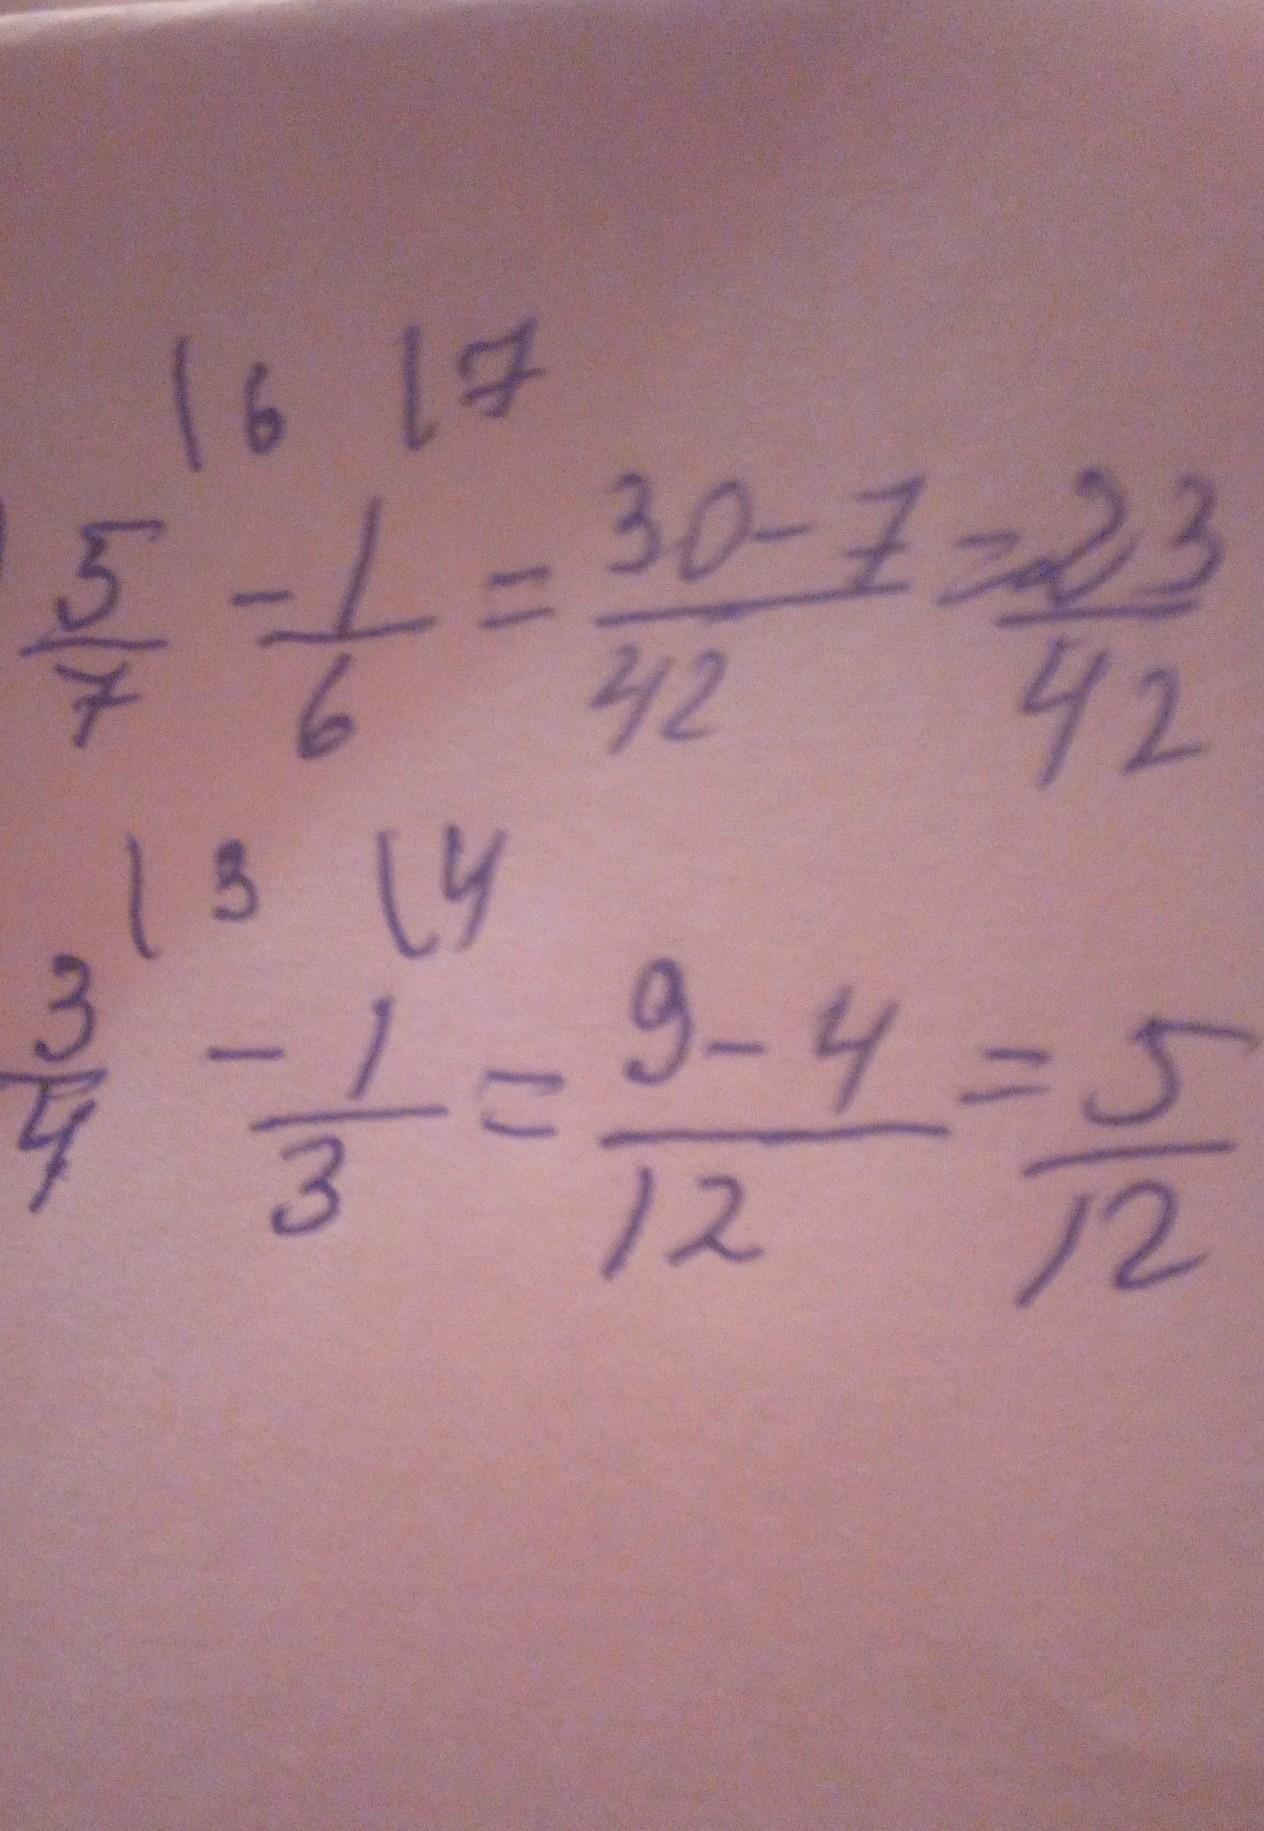 \6 \7
5/7 - 1/6 = 30-7/42 = 23/42
\3 \4
3/4 - 1/3 = 9-4/12 = 5/12